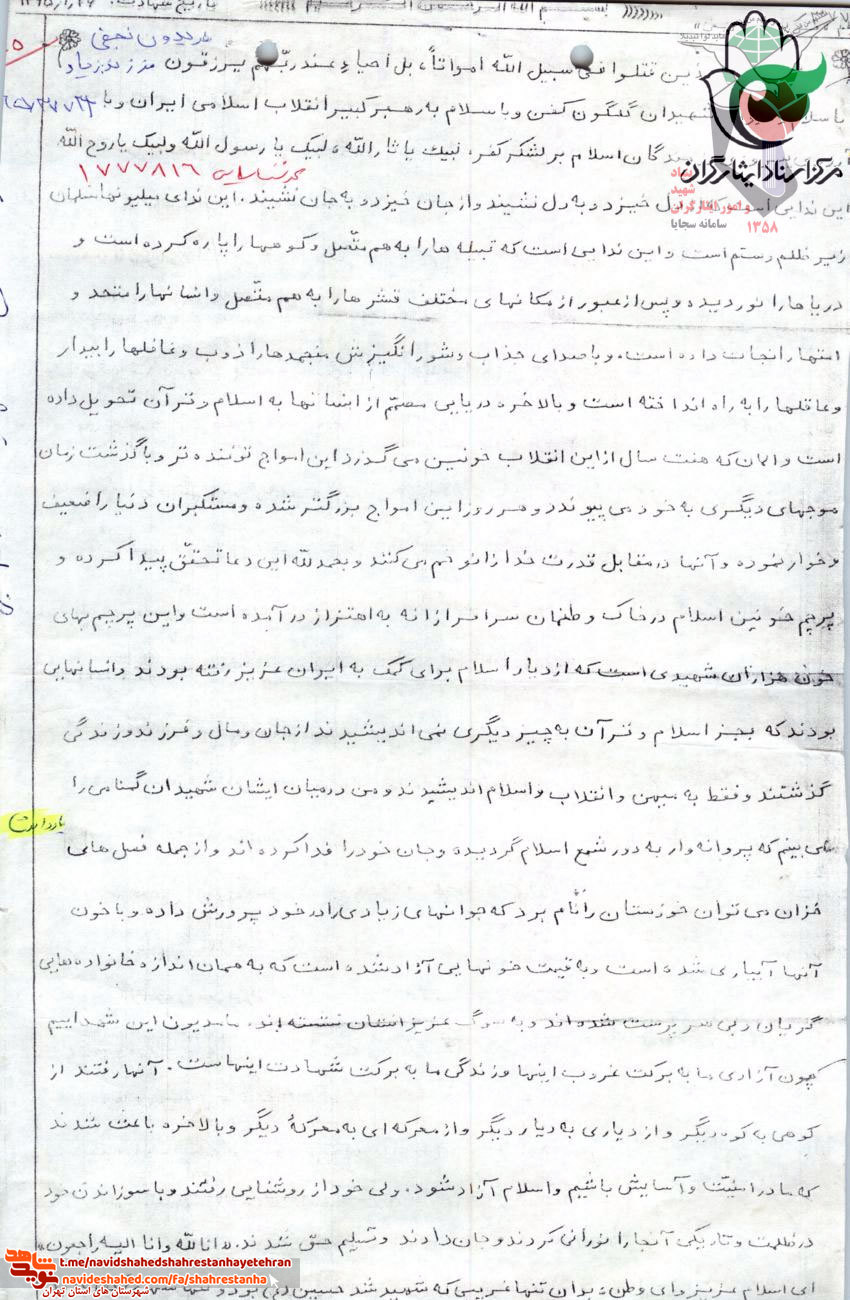 بسم الله الرحمن الرحیم
تاریخ شهادت:
فریدون نجفی
فی سبیل الله أمواتاً، بل أحیاءٍ عند ربّهم یرزقون
شهیدان گلگون کفن و با سلام به رهبر کبیر انقلاب اسلامی ایران و با
اسلام بر لشکر کفر، لبیک یا ثارالله، لبیک یا رسول الله و لبیک یا روح الله
۱۷۷۷۸۱۶
این ندایی است که از دل خیزد و به دل نشیند و از جان خیزد و به جان نشیند. این ندای میلیونها مسلمان
زیر ظلم و ستم است و این ندایی است که قبیله ها را به هم متّصل و کوهها را پاره کرده است و
دریاها را نوردیده و پس از عبور از مکانهای مختلف قشرها را به هم متّصل و انسانها را متحد و
امتها را نجات داده است. و با صدای جذاب و شورانگیزش منجمدها را ذوب و غافلها را بیدار
و عاقلها را به راه انداخته است و بالاخره دریایی مصمّم از انسانها به اسلام و قرآن تحویل داده
است و الان که هفت سال از این انقلاب خونین می گذرد این امواج توفنده تر و با گذشت زمان
موجهای دیگری به خود می پیوندد و هر روز این امواج بزرگتر شده و مستکبران دنیا را ضعیف
و خوار نموده و آنها در مقابل قدرت خدا زانو خم می کنند و بحمدلله این دعا تحقّق پیدا کرده و
پرچم خونین اسلام در خاک و طغمان سرافرازانه به اهتزاز در آمده است و این پرچم بهای
خون هزاران شهیدی است که از دیار اسلام برای کمک به ایران عزیز رفته بودند و انسانهایی
بودند که بجز اسلام و قرآن به چیز دیگری نمی اندیشیدند از جان و مال و فرزند و زندگی
گذشتند و فقط به میهن و انقلاب و اسلام اندیشیدند و من در میان ایشان شهیدان گمنامی را
می بینم که پروانه وار به دور شمع اسلام گردیده و جان خود را فدا کرده اند و از جمله فصل های
خزان می توان خوزستان را نام برد که جوانهای زیادی را در خود پرورش داده و با خون
آنها آبیاری شده است و به قیمت خونهایی آزاد شده است که به همان اندازه خانواده هایی
گریان و بی سرپرست شده اند و به سوگ عزیزانشان نشسته اند. ما مدیون این شهداییم
چون آزادی ما به برکت غروب اینها و زندگی ما به برکت شهادت اینهاست. آنها رفتند از
کوهی به کوه دیگر و از دیاری به دیار دیگر و از معرکه ای به معرکهٔ دیگر و بالاخره باعث شدند
که ما در امنیّت و آسایش باشیم و اسلام آزاد شود. ولی خود از روشنایی رفتند و با سوزاندن خود
در ظلمت و تاریکی آنجا را نورانی کردند و جان دادند و تسلیم حقّ شدند. «انا لله و انا الیه راجعون»
ای اسلام عزیز و ای وطن، بدان تنها غریبی که شهید شد حسین
مرکز اسناد ایثارگران
بنیاد
شهید
و امور ایثارگران
سامانه سجایا
۱۳۵۸
شاهد
نوید
t.me/navidshahedshahrestanhayetehran
navideshahed.com/fa/shahrestanha
شهرستان های استان تهران